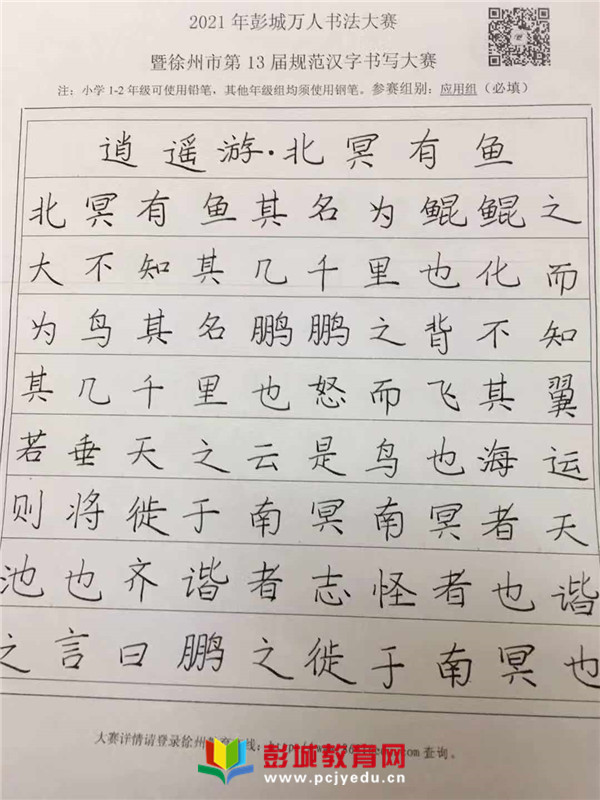 2021年彭城万人书法大赛
暨徐州市第13届规范汉字书写大赛
注：小学1-2年级可使用铅笔，其他年级组均须使用钢笔。参赛组别：应用组（必填）
逍遥游·北冥有鱼
北冥有鱼其名为鲲鲲之
大不知其几千里也化而
为鸟其名鹏鹏之背不知
其几千里也怒而飞其翼
若垂天之云是鸟也海运
则将徙于南冥南冥者天
池也齐谐者志怪者也谐
之言曰鹏之徙于南冥也
大赛详情请登录徐州 查询。
彭城教育网
www.pcjyedu.cn